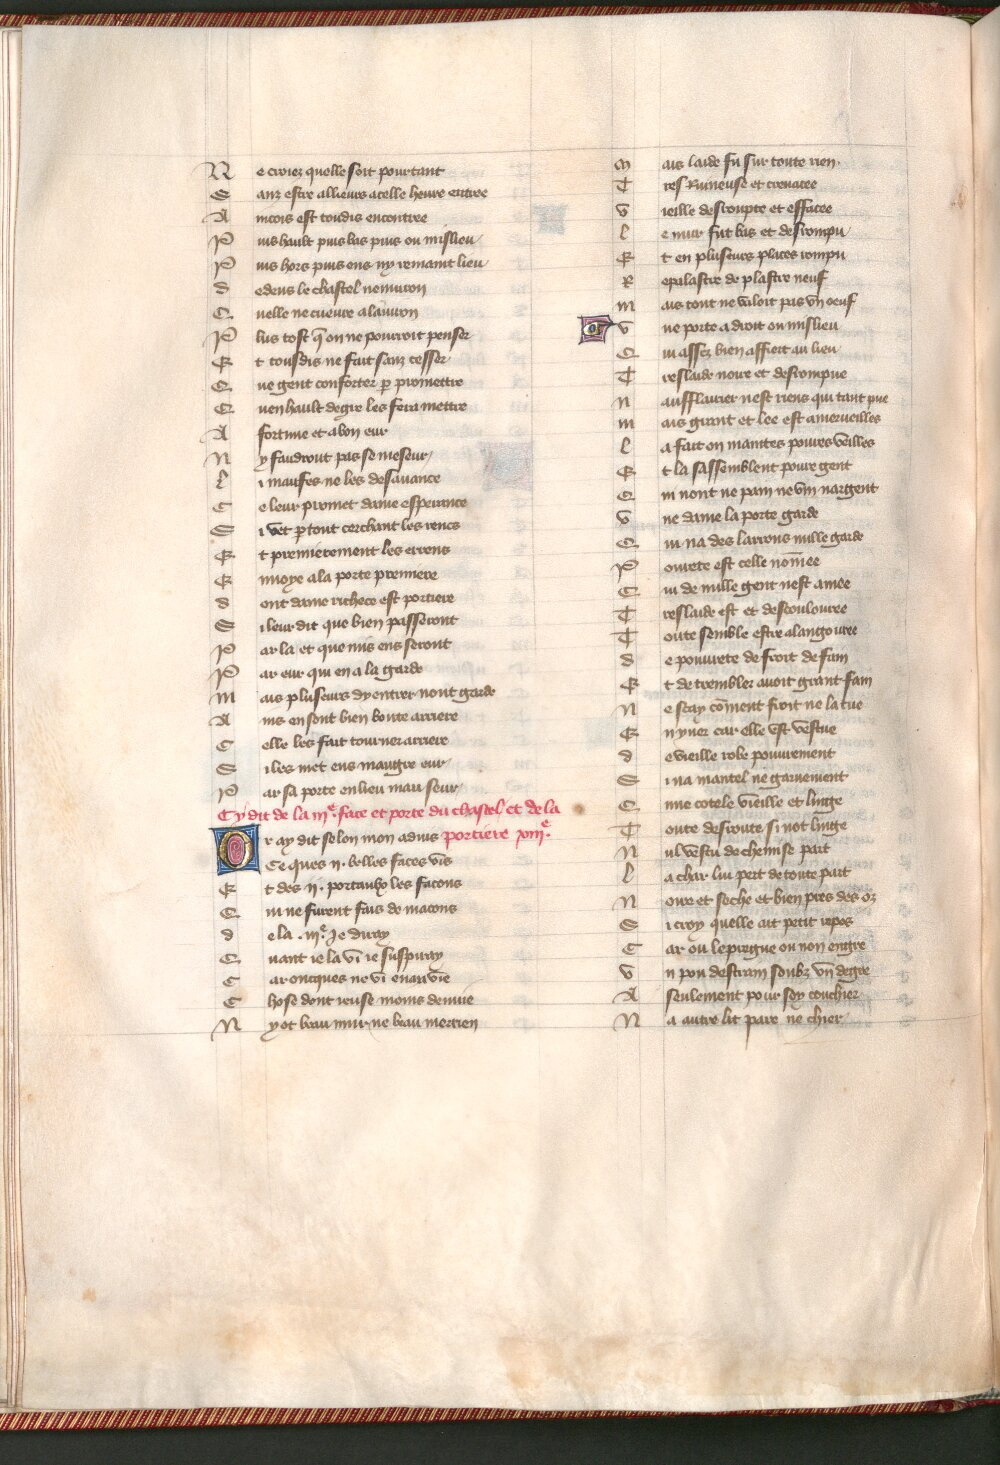 Ne croiez quelle soit pourtant
Sanz estre allieurs a celle heure entree
Aincois est toudis encontree
Puis hault puis bas puis ou mislieu
Puis hors puis ens ny remaint lieu
dedens le chastel nenuiron
Quelle ne cueure a lauiron
Plus tost q̄ on ne pourroit penser
Et tousdis ne fait sanz cesser
Que gent conforter ꝑ promettre
Quen hault degre les fera mettre
A fortune et a bon eur
Ny faudront pas se meseur
Li mauses ne les desauance
Ce leur promet dame esperance
Si vet ꝑtout cerchant les rencs
Et premierement les errens
Enuoye a la porte premiere
dont dame richece est portiere
Si leur dit que bien passeront
Par la et que mis ens seront
Par eur qui en a la garde
Mais pluseurs dy entrer nont garde
Ains en sont bien boute arriere
Celle les fait tourner arriere
Si les met ens maugre eur
Par sa porte en lieu mau seur
Cy dit de la iij.ᵉ face et porte du chastel et de la
portiere xiiij.ᵉ
Or ay dit selon mon aduis
Ce ques ij. belles faces vis
Et des ij. portaulx les facons
Qui ne furent fais de macons
de la .iij.ᵉ Je diray
Quant ie la vi ie suspiray
Car oncques ne vi en ma vie
Chose dont ieuse moins denuie
Ny ot beau mur ne beau merrien
Mais laide fu sur toute rien
Tres Ruineuse et creuacee
Vieille desroupte et effacee
Le mur fut bas et desrompu
Et en pluseurs places rompu
Repalastre de plastre neuf
Mais tout ne valoit pas vn oeuf
Vne porte a droit ou mislieu
Qui assez bien affiert au lieu
Treslaide noire et desrompue
Nausflairier nest riens qui tant pue
Mais grant et lee est a merueilles
La fait on maintes poures veilles
Et la sassemblent poure gent
Qui nont ne pain ne vin nargent
Vne dame la porte garde
Qui na des larrons nulle garde
Pourete est celle nom̄ee
Qui de nulle gent nest amee
Treslaide est et descoulouree
Toute semble estre alangouree
de pouurete de froit de fain
Et de trembler auoit grant fain
Ne scay cōment froit ne la tue
En yuer car elle est vestue
de vieille robe pourement
Si na mantel ne garnement
Qune cotele vieille et linge
Toute desroute si not linge
Nul vestu de chemise part
La char lui pert de toute part
Noire et seche et bien pres des oz
Si croy quelle ait petit repos
Car ou le preigne ou non engre
Vn pou destrain soubz vn degre
A seulement pour soy couchier
Na autre lit pare ne chier